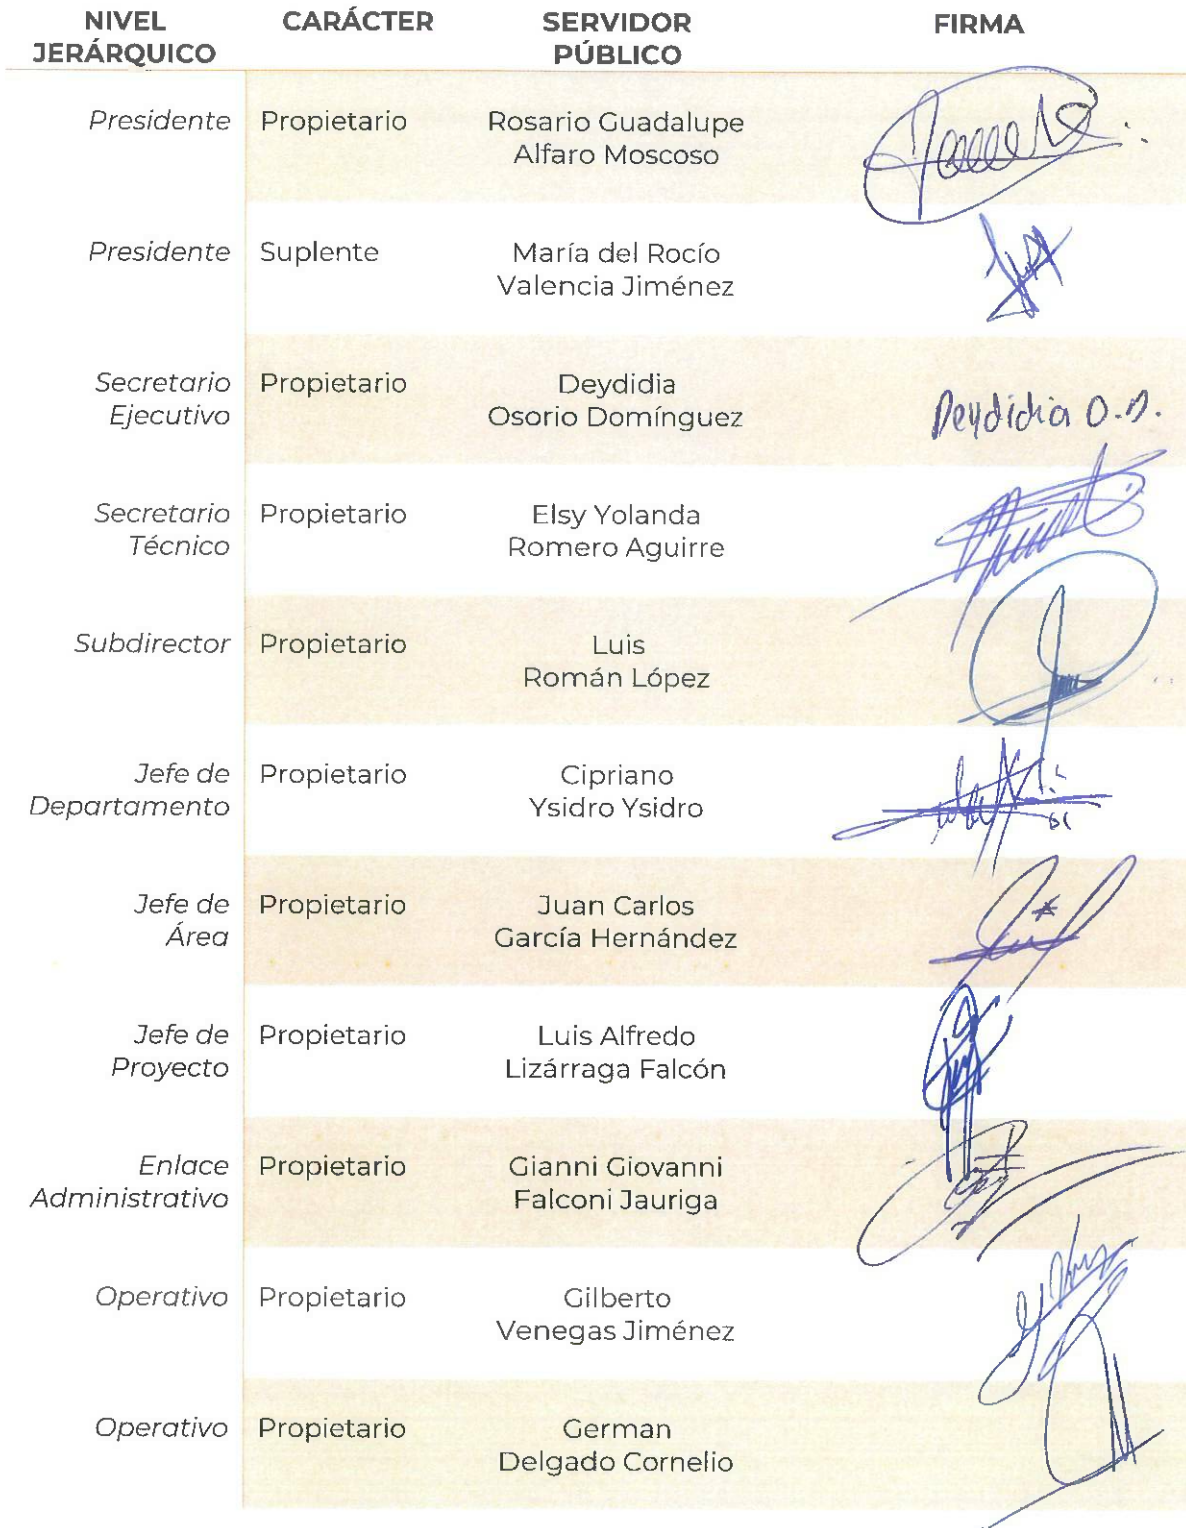 NIVEL JERÁRQUICO CARÁCTER SERVIDOR PÚBLICO FIRMA
Presidente Propietario Rosario Guadalupe
Alfaro Moscoso
Presidente Suplente María del Rocío
Valencia Jiménez
Secretario Propietario Deydidia
Ejecutivo Osorio Domínguez Deydidia O.D.
Secretario Propietario Elsy Yolanda
Técnico Romero Aguirre
Subdirector Propietario Luis
Román López
Jefe de Propietario Cipriano
Departamento Ysidro Ysidro
Jefe de Propietario Juan Carlos
Área García Hernández
Jefe de Propietario Luis Alfredo
Proyecto Lizárraga Falcón
Enlace Propietario Gianni Giovanni
Administrativo Falconi Jauriga
Operativo Propietario Gilberto
Venegas Jiménez
Operativo Propietario German
Delgado Cornelio